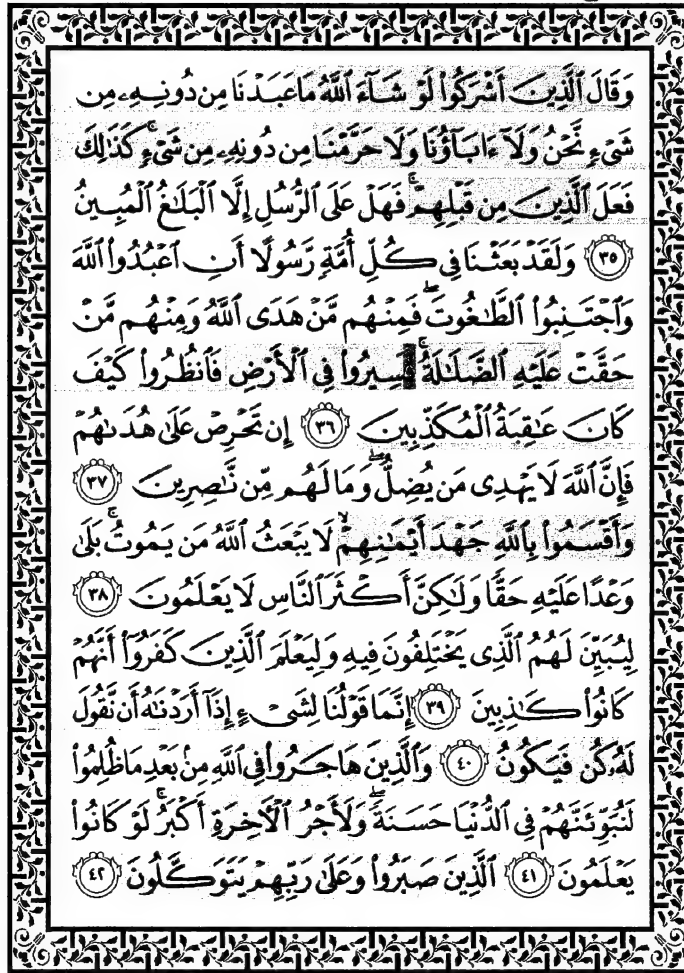 وَقَالَ ٱلَّذِينَ أَشْرَكُوا۟ لَوْ شَآءَ ٱللَّهُ مَا عَبَدْنَا مِن دُونِهِۦ مِن
شَىْءٍ نَّحْنُ وَلَآ ءَابَآؤُنَا وَلَا حَرَّمْنَا مِن دُونِهِۦ مِن شَىْءٍ ۚ كَذَٰلِكَ
فَعَلَ ٱلَّذِينَ مِن قَبْلِهِمْ ۚ فَهَلْ عَلَى ٱلرُّسُلِ إِلَّا ٱلْبَلَٰغُ ٱلْمُبِينُ
٣٥ وَلَقَدْ بَعَثْنَا فِى كُلِّ أُمَّةٍ رَّسُولًا أَنِ ٱعْبُدُوا۟ ٱللَّهَ
وَٱجْتَنِبُوا۟ ٱلطَّٰغُوتَ ۖ فَمِنْهُم مَّنْ هَدَى ٱللَّهُ وَمِنْهُم مَّنْ
حَقَّتْ عَلَيْهِ ٱلضَّلَٰلَةُ ۚ فَسِيرُوا۟ فِى ٱلْأَرْضِ فَٱنظُرُوا۟ كَيْفَ
كَانَ عَٰقِبَةُ ٱلْمُكَذِّبِينَ ٣٦ إِن تَحْرِصْ عَلَىٰ هُدَىٰهُمْ
فَإِنَّ ٱللَّهَ لَا يَهْدِى مَن يُضِلُّ ۖ وَمَا لَهُم مِّن نَّٰصِرِينَ ٣٧
وَأَقْسَمُوا۟ بِٱللَّهِ جَهْدَ أَيْمَٰنِهِمْ ۙ لَا يَبْعَثُ ٱللَّهُ مَن يَمُوتُ ۚ بَلَىٰ
وَعْدًا عَلَيْهِ حَقًّا وَلَٰكِنَّ أَكْثَرَ ٱلنَّاسِ لَا يَعْلَمُونَ ٣٨
لِيُبَيِّنَ لَهُمُ ٱلَّذِى يَخْتَلِفُونَ فِيهِ وَلِيَعْلَمَ ٱلَّذِينَ كَفَرُوٓا۟ أَنَّهُمْ
كَانُوا۟ كَٰذِبِينَ ٣٩ إِنَّمَا قَوْلُنَا لِشَىْءٍ إِذَآ أَرَدْنَٰهُ أَن نَّقُولَ
لَهُۥ كُن فَيَكُونُ ٤٠ وَٱلَّذِينَ هَاجَرُوا۟ فِى ٱللَّهِ مِنۢ بَعْدِ مَا ظُلِمُوا۟
لَنُبَوِّئَنَّهُمْ فِى ٱلدُّنْيَا حَسَنَةً ۖ وَلَأَجْرُ ٱلْءَاخِرَةِ أَكْبَرُ ۚ لَوْ كَانُوا۟
يَعْلَمُونَ ٤١ ٱلَّذِينَ صَبَرُوا۟ وَعَلَىٰ رَبِّهِمْ يَتَوَكَّلُونَ ٤٢